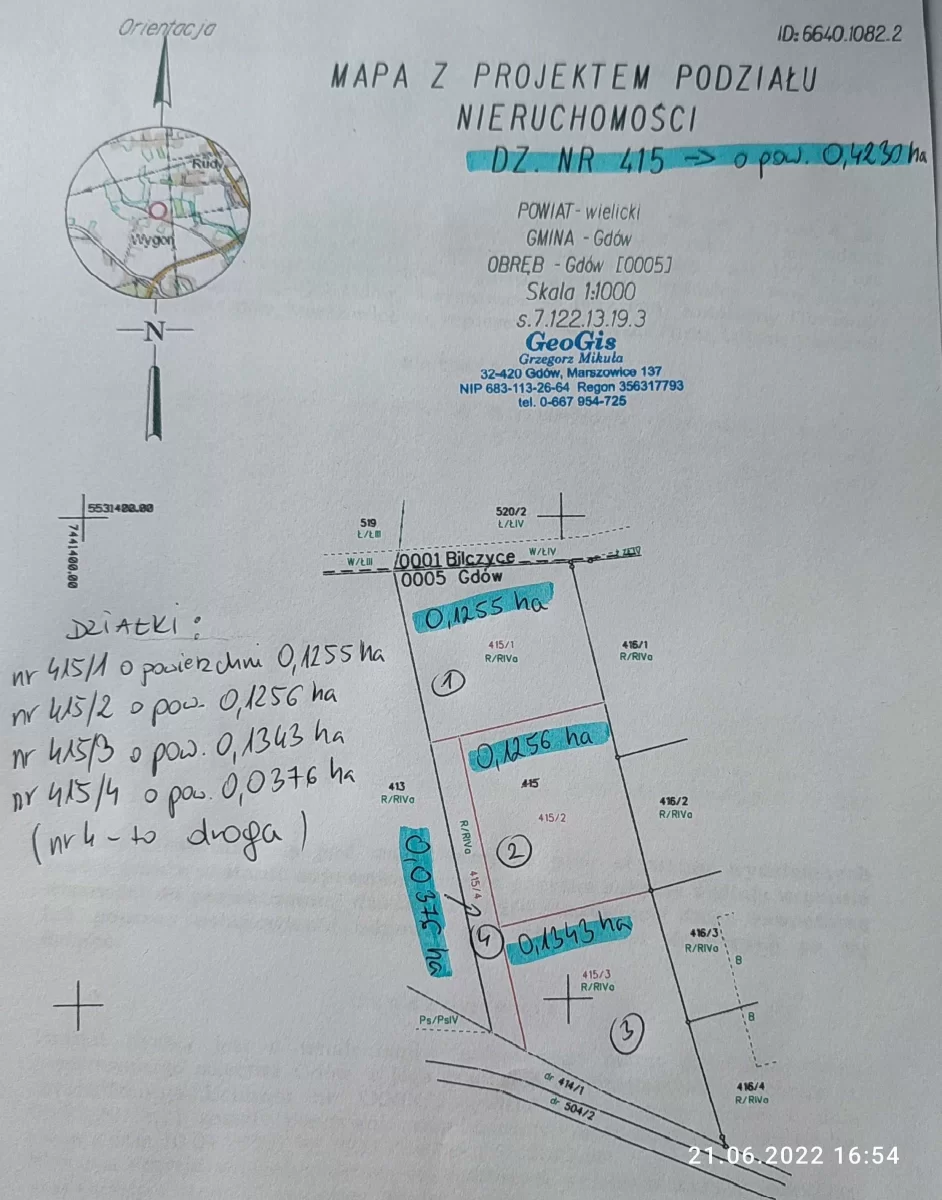 Orientacja
ID: 6640.1082.2
MAPA Z PROJEKTEM PODZIAŁU
NIERUCHOMOŚCI
DZ. NR 415 → o pow. 0,4230 ha
Rudy
Wygon
N
POWIAT- wielicki
GMINA - Gdów
OBRĘB - Gdów [0005]
Skala 1:1000
s.7.122.13.19.3
GeoGis
Grzegorz Mikuła
32-420 Gdów, Marszowice 137
NIP 683-113-26-64 Regon 356317793
tel. 0-667 954-725
5531400.00
7441400.00
519
Ł/ŁIII
520/2
Ł/ŁIV
W/ŁIII
0001 Bilczyce
W/ŁIV
0005 Gdów
0,1255 ha
415/1
R/RIVa
416/1
R/RIVa
1
DZIAŁKI:
nr 415/1 o powierzchni 0,1255 ha
nr 415/2 o pow. 0,1256 ha
nr 415/3 o pow. 0,1343 ha
nr 415/4 o pow. 0,0376 ha
(nr 4 - to droga)
0,1256 ha
415
415/2
2
413
R/RIVa
416/2
R/RIVa
R/RIVa
415/4
0,0376 ha
4
0,1343 ha
415/3
R/RIVa
3
416/3
R/RIVa
B
B
Ps/PsIV
dr 414/1
dr 504/2
416/4
R/RIVa
21.06.2022 16:54